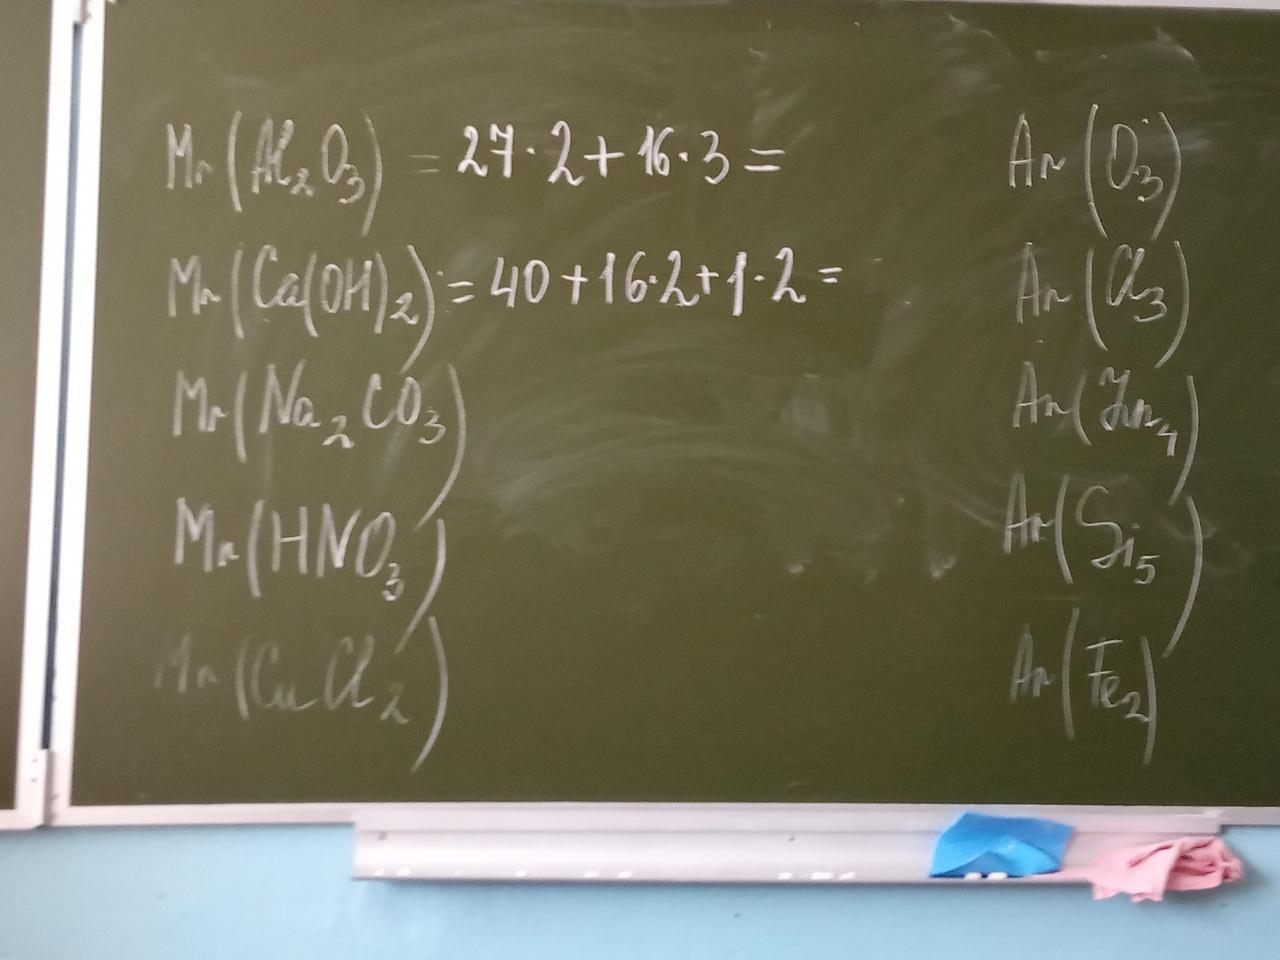 Mr(Al₂O₃) = 27·2+16·3=
Mr(Ca(OH)₂) = 40+16·2+1·2=
Mr(Na₂CO₃)
Mr(HNO₃)
Mr(CuCl₂)
Ar(O₃)
Ar(Cl₃)
Ar(Zn₄)
Ar(Si₅)
Ar(Fe₂)